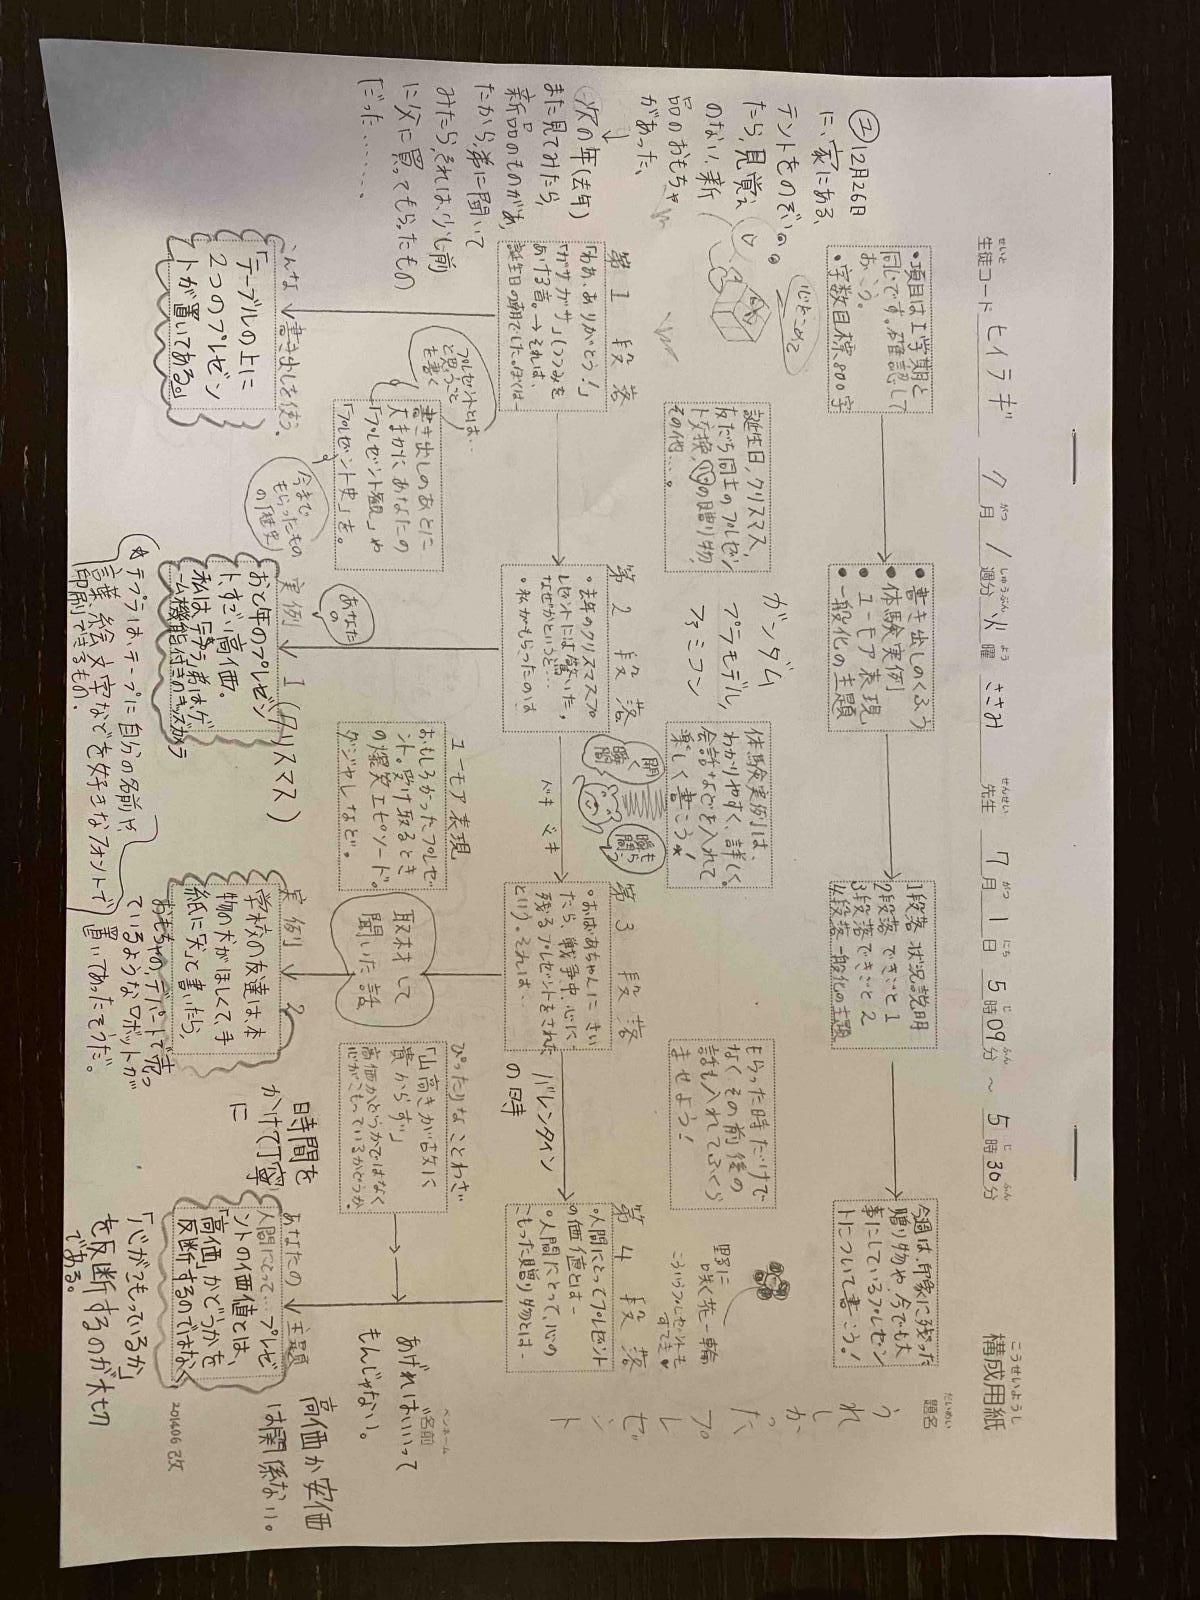 構成用紙
こうせいようし
生徒コード ヒイラギ 7月1週分 火曜 ささみ 先生 7月1日5時09分～5時30分
せいと がつ しゅうぶん よう せんせい がつ にち じ ふん じ ふん
題名
だいめい
うれしかったプレゼント
ペンネーム
名前
・項目は1学期と
同じです。確認して
おこう。
・字数目標800字
● 書き出しのくふう
● 体験実例
● ユーモア表現
● 一般化の主題
1段落 状況説明
2段落 できごと1
3段落 できごと2
4段落 一般化の主題
今週は、印象に残った
贈り物や、今でも大
事にしているプレゼン
トについて書こう!
心をこめて
誕生日、クリスマス、
友だち同士のプレゼン
ト交換、心の贈り物、
その他…。
ガンダム
プラモデル
ファミコン
体験実例は、
わかりやすく、詳しく。
会話などを入れて
楽しく書こう☆
開く
瞬間
もらう
瞬間
もらった時だけで
なくその前後の
話も入れてふくら
ませよう!
野に
咲く花一輪
こういうプレゼントも
すてき♥
②12月26日
に、家にある、
テントをのぞい
たら、見覚え
のない、新
品のおもちゃ
があった。
↓
次の年(去年)
また見てみたら、
新品のものがあっ
たから、弟に聞いて
みたら、それは、少し前
に父に買ってもらったもの
だった……。
第1段落
「わあ、ありがとう!」
「ガサガサ」(つつみを
あける音。→それは
誕生日の朝でした。ぼくは…
第2段落
・去年のクリスマスプ
レゼントには驚いた。
なぜかというと…
・私がもらったのは
第3段落
・おばあちゃんにきい
たら、戦争中、心に
残るプレゼントをされた
という。それは…
バレンタイン
の時
第4段落
・人間にとってプレゼント
の価値とは…
・人間にとって、心の
こもった贈り物とは…
プレゼントとは…
と思うこと
を書く
書き出しのあとに
大まかにあなたの
「プレゼント観」や
「プレゼント史」を。
今まで
もらったもの
の「歴史」
ユーモア表現
おもしろかったプレゼ
ント。受け取るとき
の爆笑エピソード。
ダジャレなど。
取材して
聞いた話
ぴったりなことわざ
「山高きが故に
貴からず」
高価かどうかではなく
心がこもっているかどうか。
あげればいいって
もんじゃない。
こんな書き出しを使う。
「テーブルの上に
2つのプレゼン
トが置いてある。」
あなたの
実例1(クリスマス)
おと年のプレゼン
ト、すごい高価。
私はテプラ、弟は、ゲ
ーム機能付きのキッズカメラ
☆テプラは、テープに自分の名前や、
言葉、絵文字などを好きなフォントで
印刷できるもの。
実例2
学校の友達は、本
物の犬がほしくて、手
紙に「犬」と書いたら、
おもちゃの、デパートで売っ
ているような、ロボットが
置いてあったそうだ。
時間を
かけて丁寧
に
あなたの主題
人間にとって…プレゼ
ントの価値とは、
「高価」かどうかを
反断するのではなく
「心がこもっているか」
を反断するのが大切
である。
高価か安価
は関係ない。
201406 改